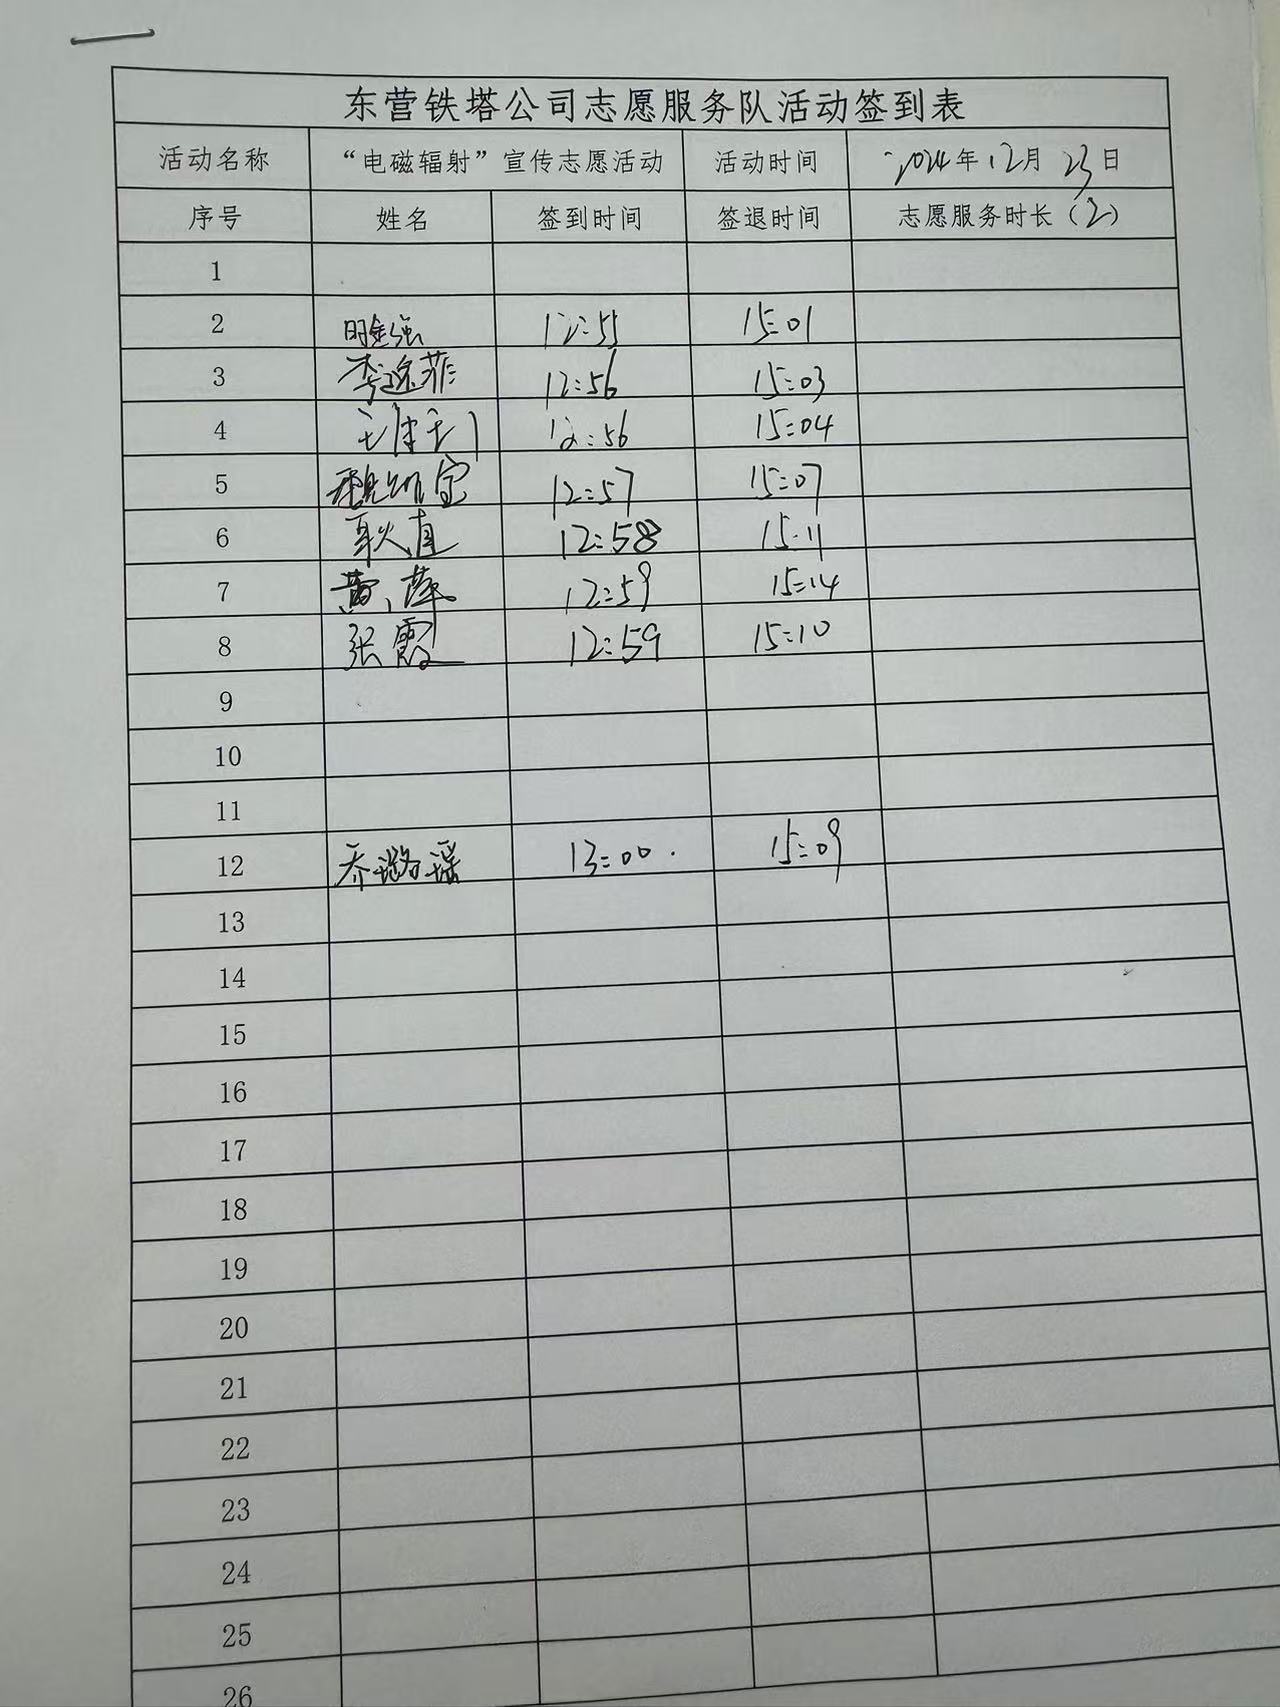 东营铁塔公司志愿服务队活动签到表
活动名称 “电磁辐射”宣传志愿活动 活动时间 2024年12月23日
序号 姓名 签到时间 签退时间 志愿服务时长（2）
1
2 12:55 15:01
3 李逸菲 12:56 15:03
4 12:56 15:04
5 12:57 15:07
6 耿直 12:58 15:11
7 黄萍 12:59 15:14
8 张霞 12:59 15:10
9
10
11
12 乔潞瑶 13:00 15:09
13
14
15
16
17
18
19
20
21
22
23
24
25
26